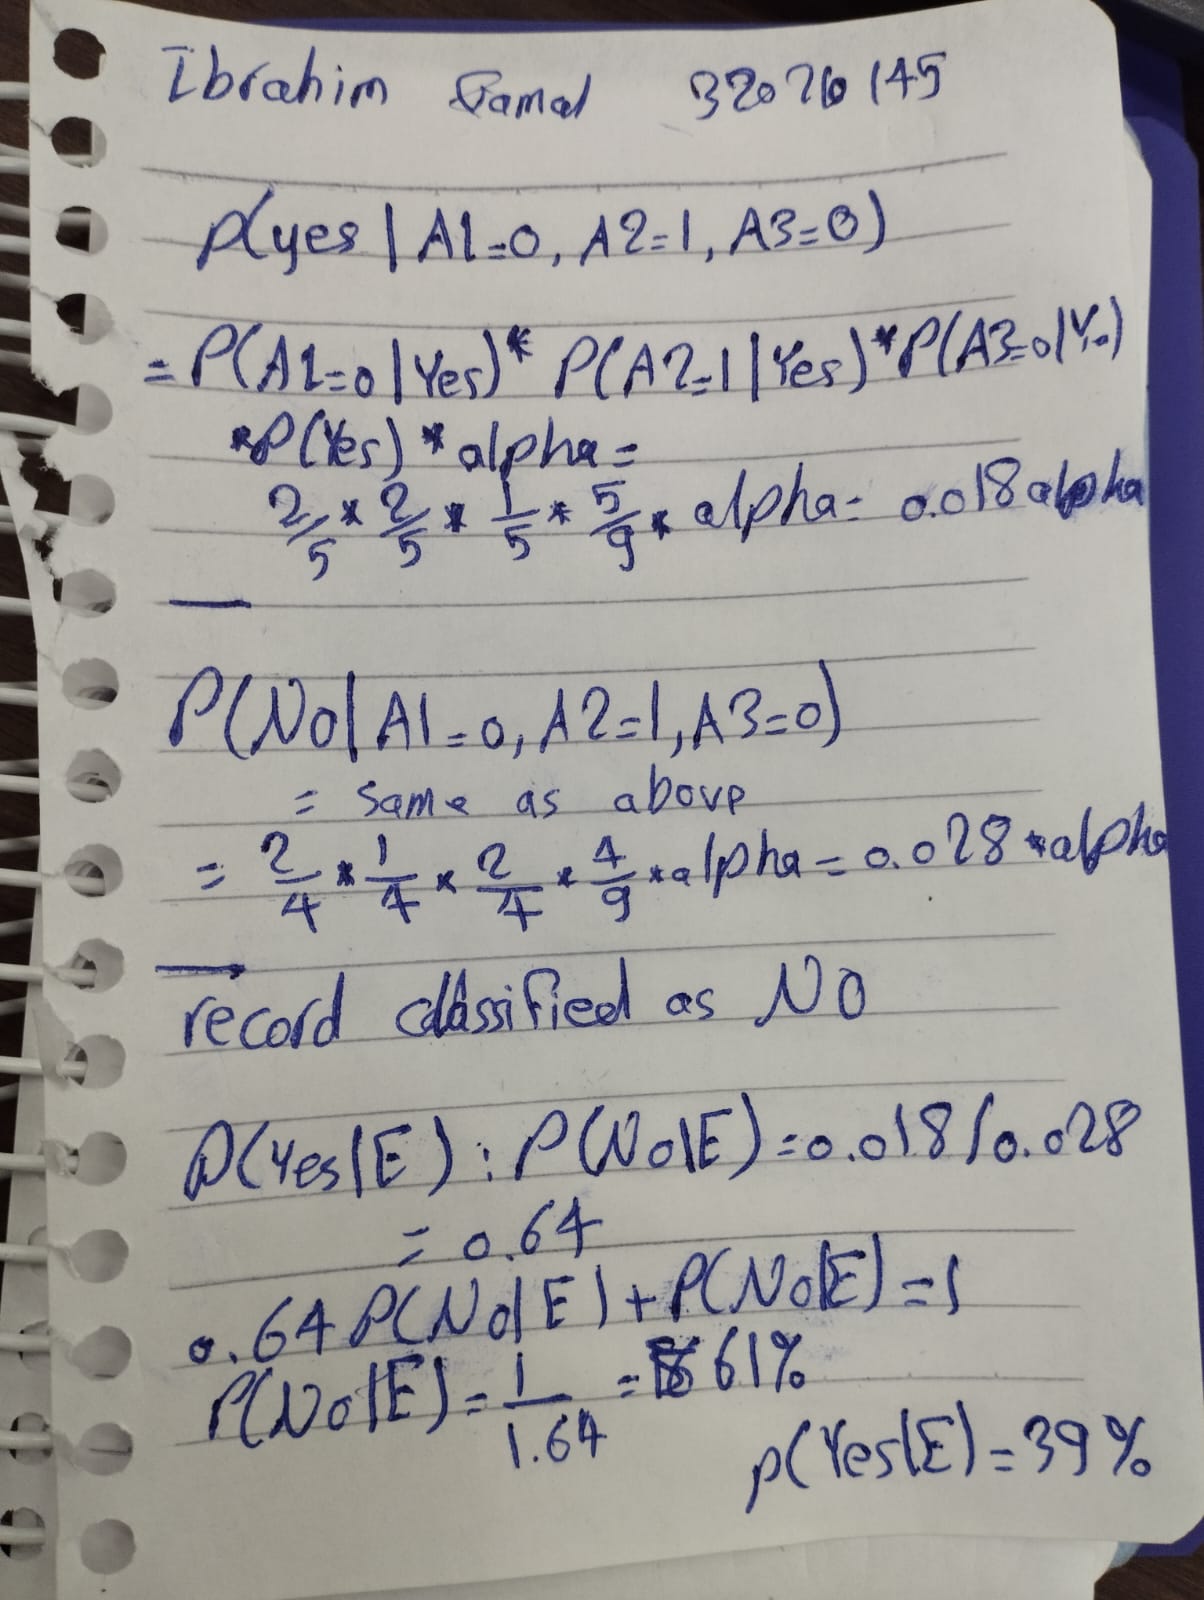 Ibrahim Gamal 32026145
P(yes | A1=0, A2=1, A3=0)
= P(A1=0 | Yes) * P(A2=1 | Yes) * P(A3=0 | Yes)
* P(Yes) * alpha =
2/5 * 2/5 * 1/5 * 5/9 * alpha = 0.018 alpha
P(No | A1=0, A2=1, A3=0)
= Same as above
= 2/4 * 1/4 * 2/4 * 4/9 * alpha = 0.028 * alpha
record classified as NO
P(Yes|E) : P(No|E) = 0.018 / 0.028
= 0.64
0.64 P(No|E) + P(No|E) = 1
P(No|E) = 1/1.64 = 61%
P(Yes|E) = 39%